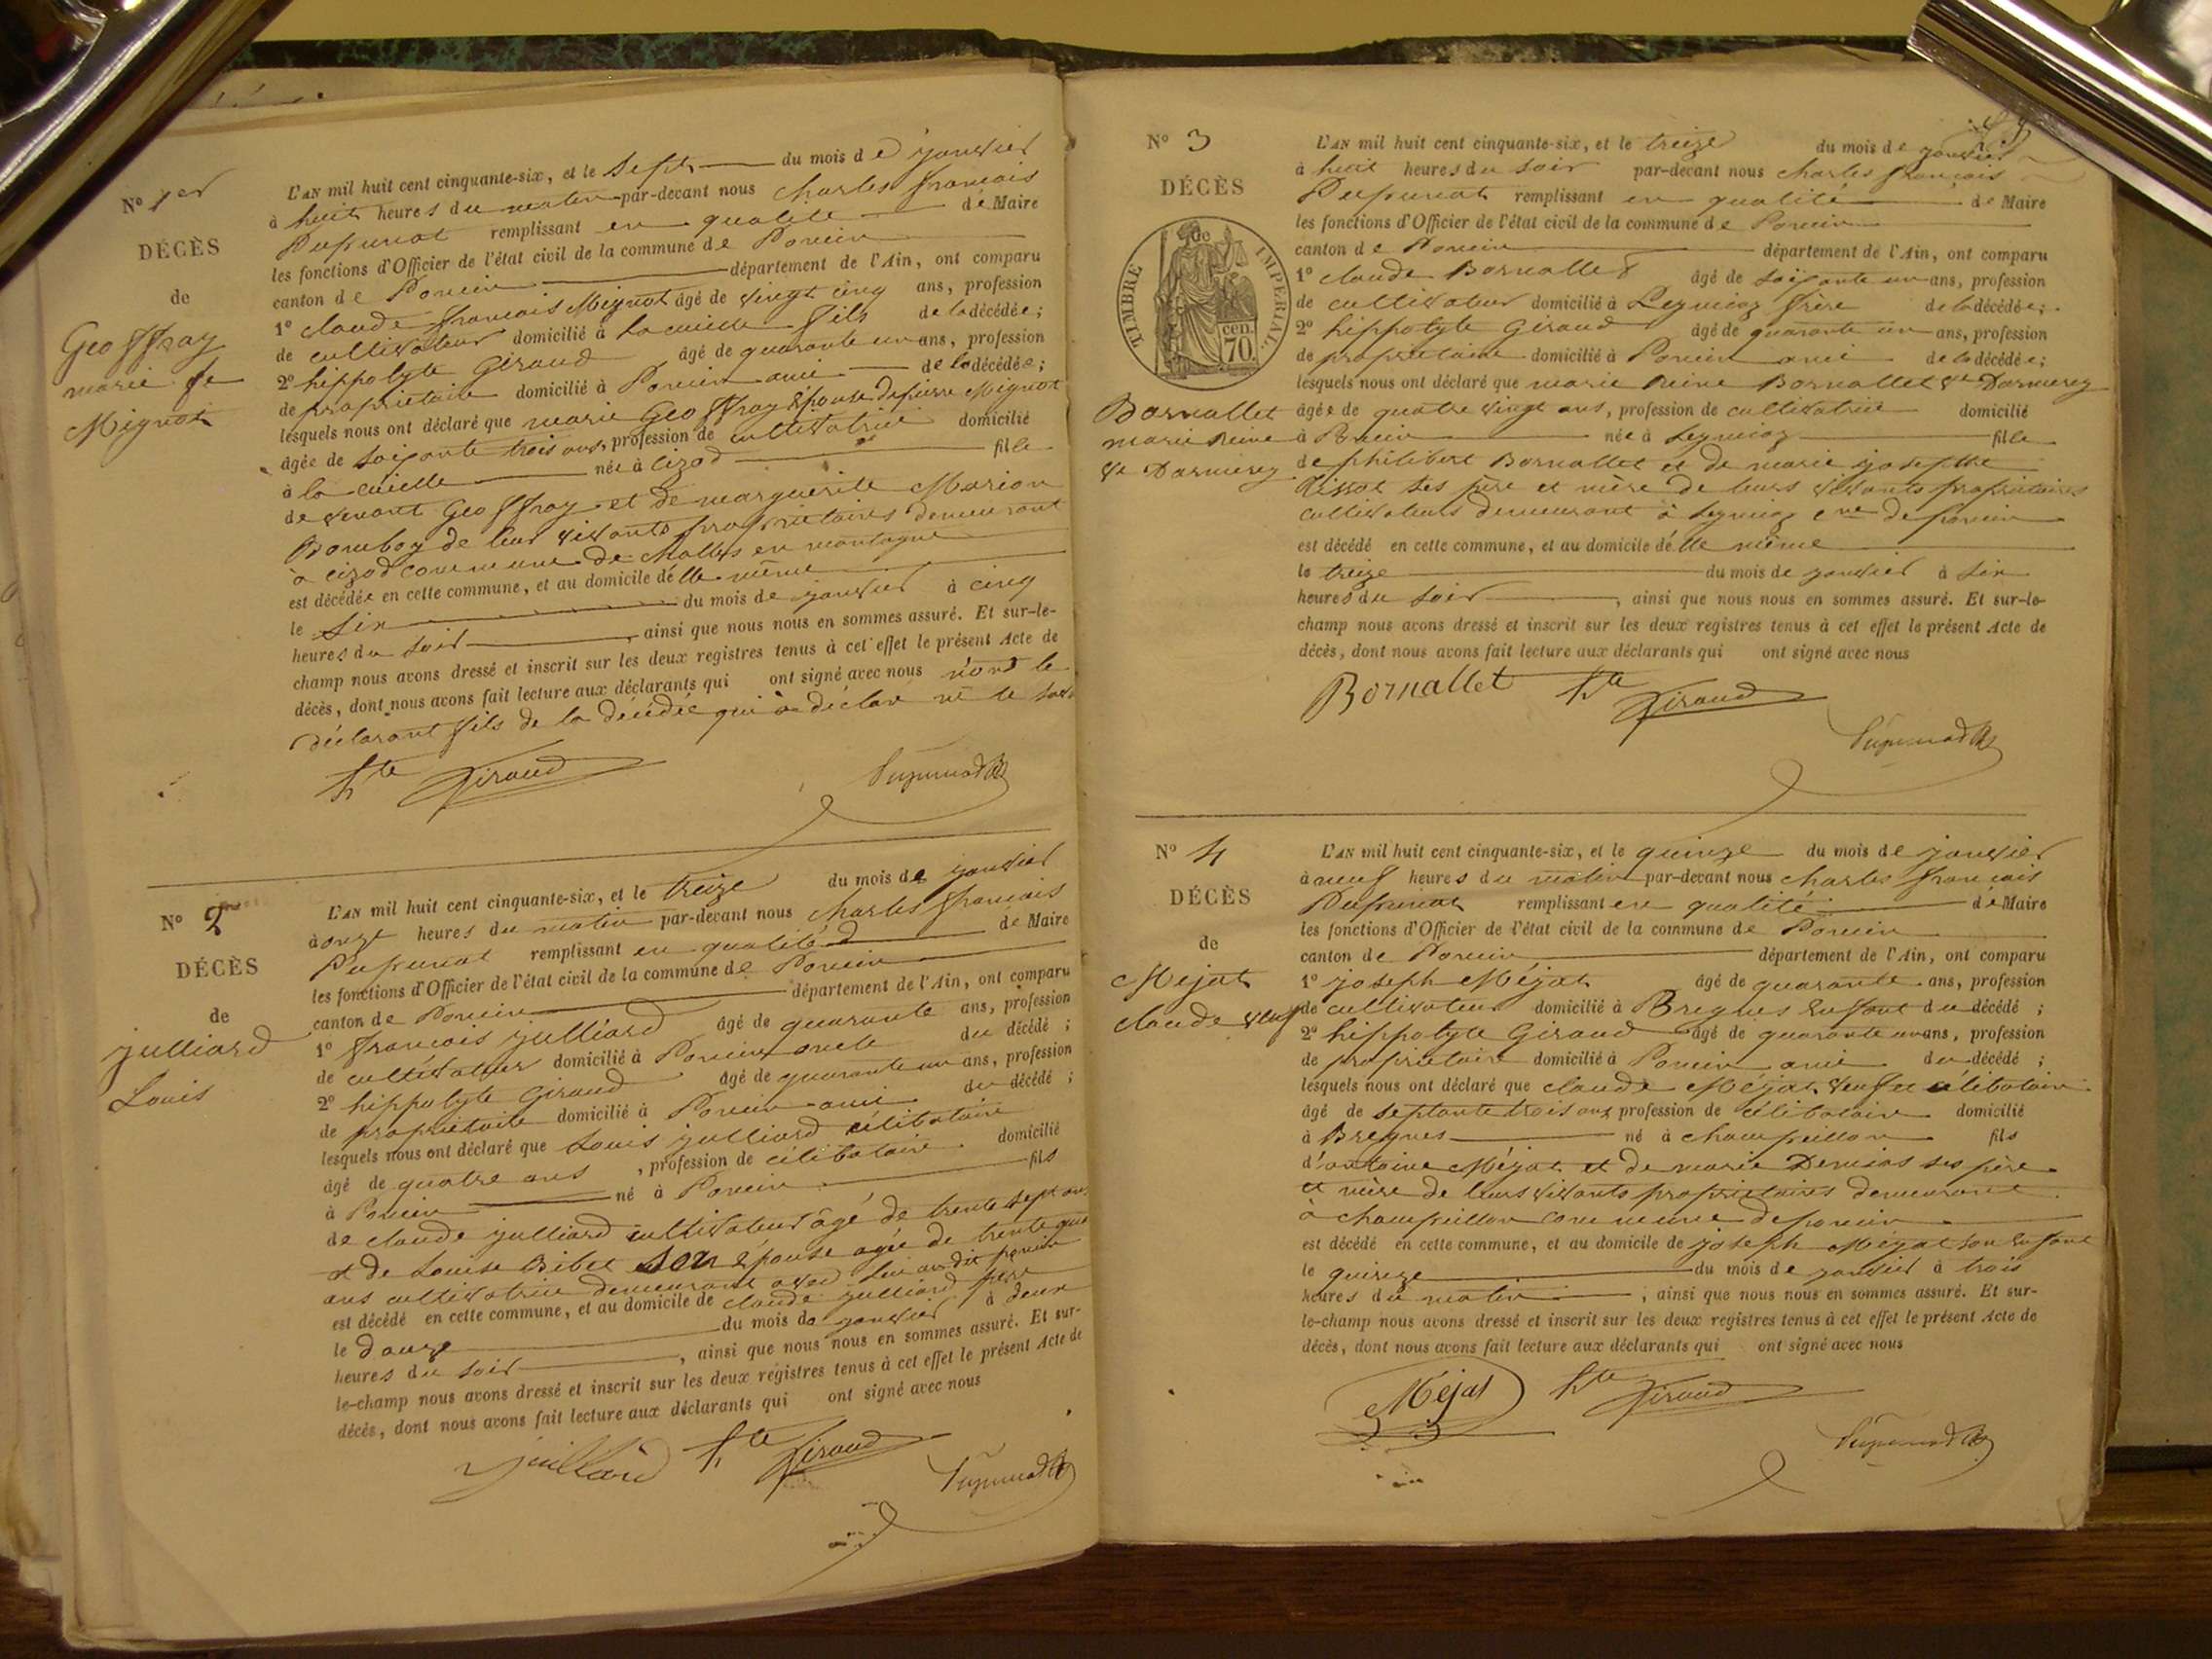 No 1er
DÉCÈS
de
Geoffray
marie fe
Mignot
L'AN mil huit cent cinquante-six, et le sept du mois de janvier
à huit heures du matin par-devant nous charles francois
Dupunat remplissant en qualité de Maire
les fonctions d'Officier de l'état civil de la commune de Poncin
canton de Poncin département de l'Ain, ont comparu
1o claude francois Mignot âgé de vingt cinq ans, profession
de cultivateur domicilié à la cueille fils de la décédée;
2o hippolyte Giraud âgé de quarante un ans, profession
de propriétaire domicilié à Poncin ami de la décédée;
lesquels nous ont déclaré que marie Geoffray épouse de pierre Mignot
âgée de soixante trois ans, profession de cultivatrice domicilié
à la cueille née à cizod fille
de venant Geoffray et de marguerite Marion
Bomboy de leur vivants propriétaires demeurant
à cizod commune de challes en montagne
est décédée en cette commune, et au domicile d'elle même
le six du mois de janvier à cinq
heures du soir, ainsi que nous nous en sommes assuré. Et sur-le-
champ nous avons dressé et inscrit sur les deux registres tenus à cet effet le présent Acte de
décès, dont nous avons fait lecture aux déclarants qui ont signé avec nous non le
déclarant fils de la décédée qui a déclaré ne le
hte Giraud Dupunat
No 2
DÉCÈS
de
julliard
Louis
L'AN mil huit cent cinquante-six, et le treize du mois de janvier
à onze heures du matin par-devant nous charles francois
Dupunat remplissant en qualité de Maire
les fonctions d'Officier de l'état civil de la commune de Poncin
canton de Poncin département de l'Ain, ont comparu
1o francois julliard âgé de quarante ans, profession
de cultivateur domicilié à Poncin oncle du décédé;
2o hippolyte Giraud âgé de quarante un ans, profession
de propriétaire domicilié à Poncin ami du décédé;
lesquels nous ont déclaré que Louis julliard célibataire
âgé de quatre ans, profession de célibataire domicilié
à Poncin né à Poncin fils
de claude julliard cultivateur âgé de trente sept ans
et de Louise Bibet son épouse agée de trente
ans cultivatrice demeurant avec lui au dit poncin
est décédé en cette commune, et au domicile de claude julliard père
le douze du mois de janvier à deux
heures du soir, ainsi que nous nous en sommes assuré. Et sur-
le-champ nous avons dressé et inscrit sur les deux registres tenus à cet effet le présent Acte de
décès, dont nous avons fait lecture aux déclarants qui ont signé avec nous
Juilliard hte Giraud Dupunat
No 3
DÉCÈS
de
TIMBRE IMPERIAL.
cen. 70.
Bornallet
marie Reine
ve Darmerey
L'AN mil huit cent cinquante-six, et le treize du mois de janvier
à huit heures du soir par-devant nous charles francois
Dupunat remplissant en qualité de Maire
les fonctions d'Officier de l'état civil de la commune de Poncin
canton de Poncin département de l'Ain, ont comparu
1o claude Bornallet âgé de soixante un ans, profession
de cultivateur domicilié à Leymiaz frère de la décédée;
2o hippolyte Giraud âgé de quarante un ans, profession
de propriétaire domicilié à Poncin ami de la décédée;
lesquels nous ont déclaré que marie Reine Bornallet ve Darmerey
âgée de quatre vingt ans, profession de cultivatrice domicilié
à Poncin née à Leymiaz fille
de philibert Bornallet et de marie josephte
Tissot ses père et mère de leurs vivants propriétaires
cultivateurs demeurant à Leymiaz cne de poncin
est décédé en cette commune, et au domicile d'elle même
le treize du mois de janvier à six
heures du soir, ainsi que nous nous en sommes assuré. Et sur-le-
champ nous avons dressé et inscrit sur les deux registres tenus à cet effet le présent Acte de
décès, dont nous avons fait lecture aux déclarants qui ont signé avec nous
Bornallet hte Giraud Dupunat
No 4
DÉCÈS
de
Mejat
claude veuf
L'AN mil huit cent cinquante-six, et le quinze du mois de janvier
à neuf heures du matin par-devant nous charles francois
Dupunat remplissant en qualité de Maire
les fonctions d'Officier de l'état civil de la commune de Poncin
canton de Poncin département de l'Ain, ont comparu
1o joseph Méjat âgé de quarante ans, profession
de cultivateur domicilié à Bregnes enfant du décédé;
2o hippolyte Giraud âgé de quarante un ans, profession
de propriétaire domicilié à Poncin ami du décédé;
lesquels nous ont déclaré que claude Méjat veuf célibataire
âgé de septante trois ans profession de célibataire domicilié
à Bregnes né à champeillon fils
d'antoine Méjat et de marie Demias ses père
et mère de leurs vivants propriétaires demeurant
à champeillon commune de poncin
est décédé en cette commune, et au domicile de joseph Méjat son enfant
le quinze du mois de janvier à trois
heures du matin; ainsi que nous nous en sommes assuré. Et sur-
le-champ nous avons dressé et inscrit sur les deux registres tenus à cet effet le présent Acte de
décès, dont nous avons fait lecture aux déclarants qui ont signé avec nous
Méjat hte Giraud Dupunat